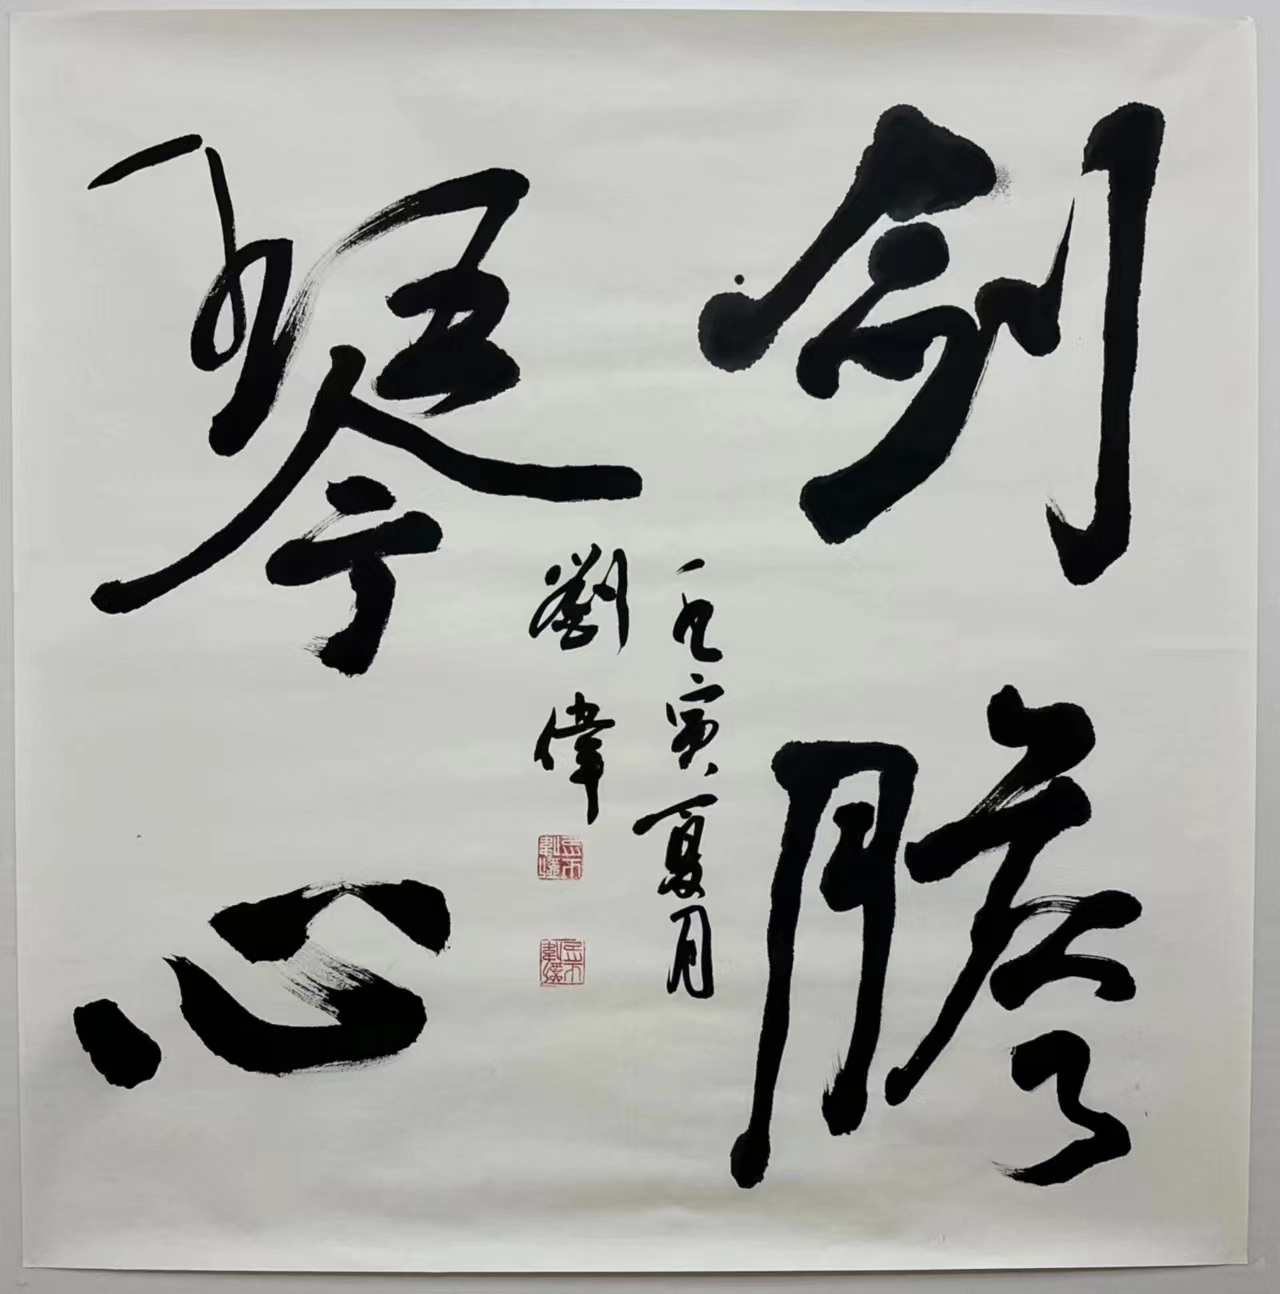 劍膽
琴心
壬寅夏月
劉偉